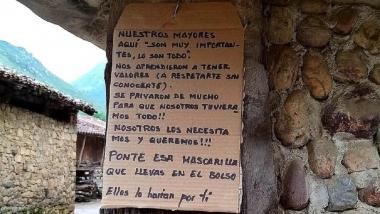 NUESTROS MAYORES
AQUÍ "SON MUY IMPORTAN-
TES, LO SON TODO".
NOS APRENDIERON A TENER
VALORES (A RESPETARTE SIN
CONOCERTE).
SE PRIVARON DE MUCHO
PARA QUE NOSOTROS TUVIERA
MOS TODO!!
NOSOTROS LOS NECESITA
MOS Y QUEREMOS!!!
PONTE ESA MASCARILLA
QUE LLEVAS EN EL BOLSO
Ellos lo harían por ti